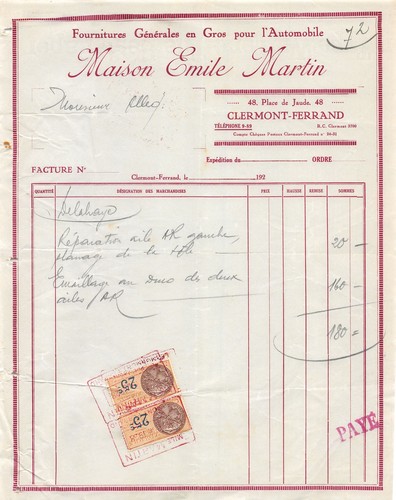 Fournitures Générales en Gros pour l'Automobile
72
Maison Emile Martin
Monsieur
48, Place de Jaude, 48
CLERMONT-FERRAND
TÉLÉPHONE 9-66 R.C. Clermont 5700
Compte Chèques Postaux Clermont-Ferrand n°
Expédition du ORDRE
FACTURE N°
Clermont-Ferrand, le 192
QUANTITÉ DÉSIGNATION DES MARCHANDISES PRIX HAUSSE REMISE SOMMES
Delahaye
Réparation aile AR gauche,
planage de la tôle 20 —
Emaillage au duco des deux
ailes AR 160 —
180 =
25c
25c
PAYÉ